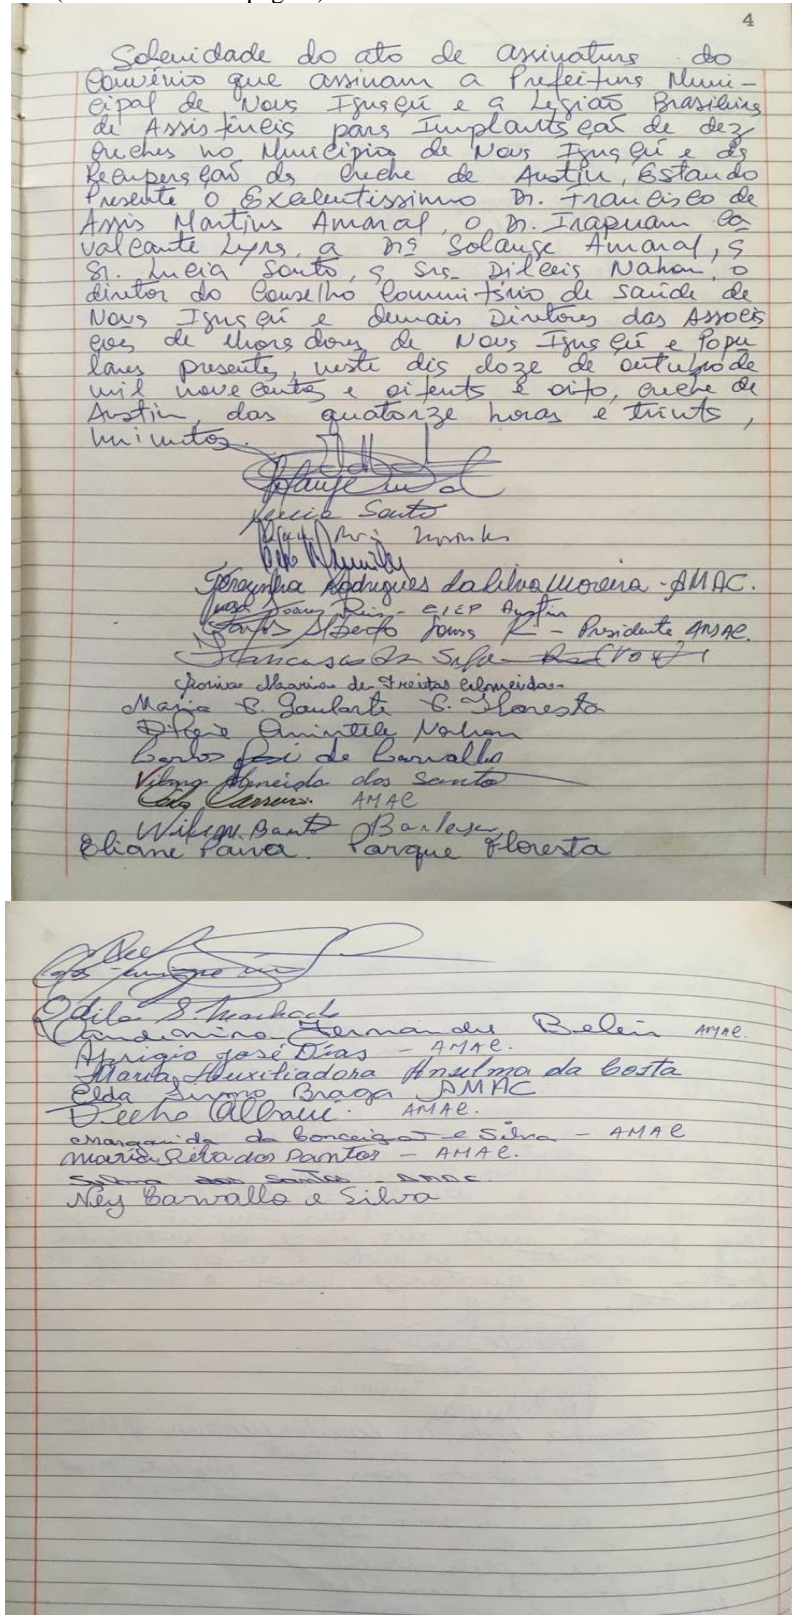 4
Solenidade do ato de assinatura do
Convênio que assinam a Prefeitura Muni-
cipal de Nova Iguaçú e a Legião Brasileira
de Assistência para Implantação de dez
creches no Município de Nova Iguaçú e da
Recuperação da creche de Austin, Estando
Presente o Excelentissimo Dr. Francisco de
Assis Martins Amaral, o Dr. Irapuam Ca
valcante Lyra, a Drª Solange Amaral, a
Sr. Lucia Souto, a Sra. Dilceia Nahon, o
diretor do Conselho Comunitário de saúde de
Nova Iguaçú e demais Diretores das Associa
ções de Moradores de Nova Iguaçú e Popu
lares presente, neste dia doze de outubro de
mil novecentos e oitenta e oito, creche de
Austin, das quatorze horas e trinta,
minutos.
Solange
Lucia Souto
Terezinha Rodrigues da Silva Moreira - AMAC.
Reis - CIEP Austin
Carlos Alberto - Presidente AMAC.
Francisco da Silva
Maria de Freitas Almeida
Maria S. Goularte S. Floresta
Nahon
Carlos José de Carvalho
Vilma Almeida dos Santo
AMAC
Wilson
Eliane Paiva. Parque Floresta
Odila S. Machado
Fernandes Belém AMAC.
Aprigio José Dias - AMAC.
Maria Auxiliadora Anselma da Costa
Elda Braga AMAC
AMAC.
Margarida da Conceição e Silva - AMAC
Maria Rita dos Santos - AMAC.
dos Santos - AMAC.
Ney Carvallo e Silva